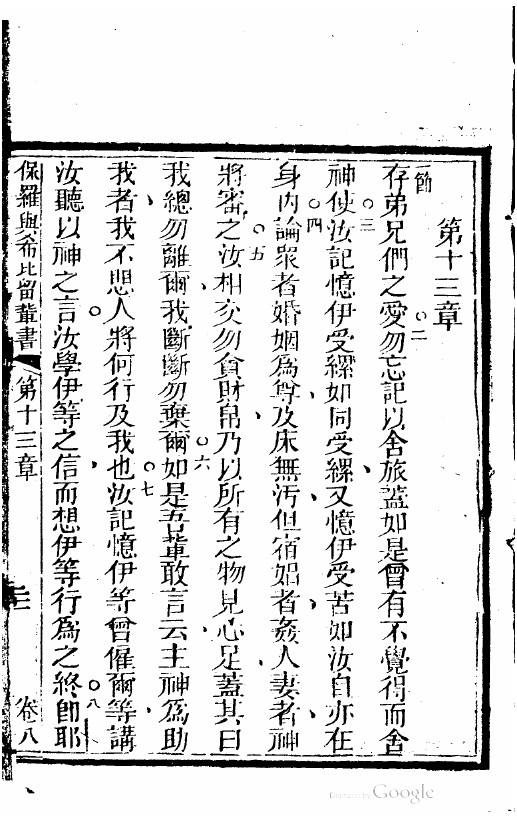 第十三章
節
存弟兄們之愛○二勿忘記以舍旅蓋如是曾有不覺得而舍
神使○三汝記憶伊受縲如同受縲又憶伊受苦如汝自亦在
身內○四論眾者婚姻為尊及床無污但宿娼者姦人妻者神
將審之○五汝相交勿貪財帛乃以所有之物見心足蓋其曰
我總勿離爾我斷斷勿棄爾○六如是吾輩敢言云主神為助
我者我不怨人將何行及我也○七汝記憶伊等曾僱爾等講
汝聽以神之言汝學伊等之信而想伊等行為之終○八即耶
保羅與希比留輩書 第十三章 卷八
Digitized by Google